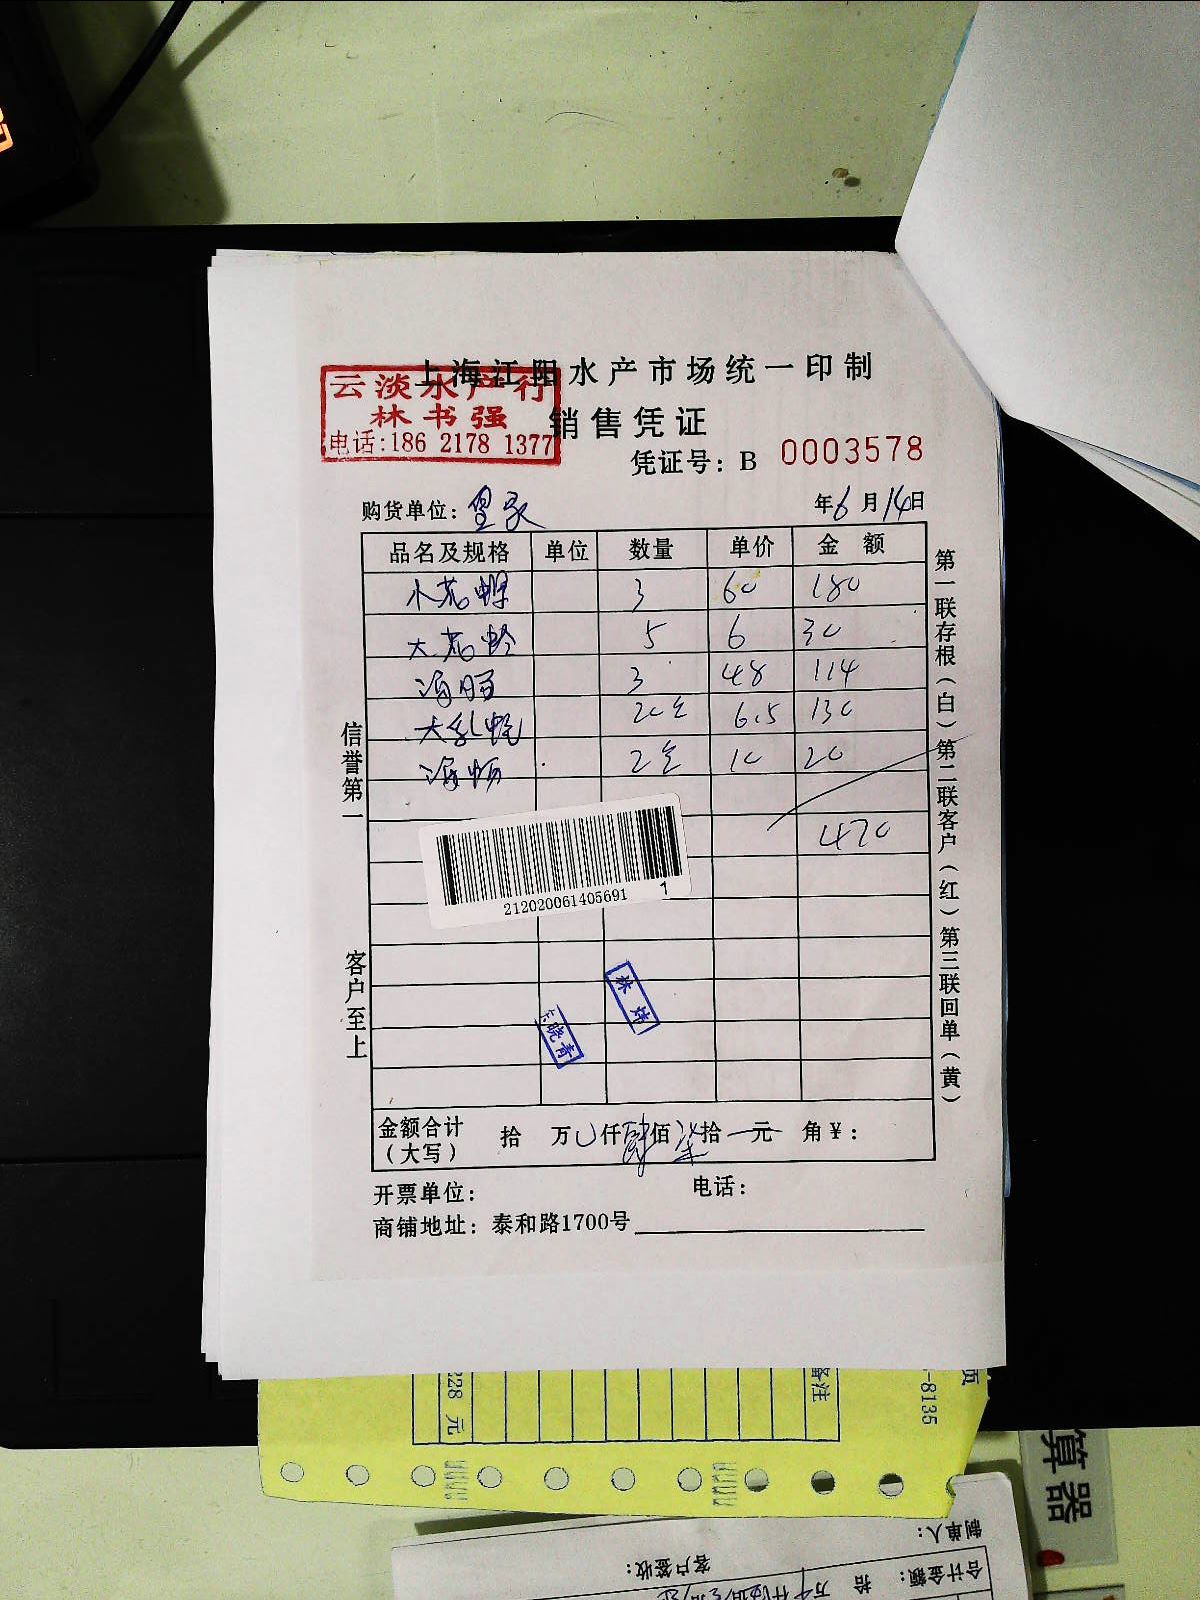 上海江阳水产市场统一印制
云淡水产行
林书强
电话:186 2178 1377
销售凭证
凭证号: B 0003578
购货单位:
年6月14日
品名及规格 单位 数量 单价 金 额
3 60 180
5 6 30
3 48 114
20 6.5 130
2 10 20
470
212020061405691 1
信誉第一
客户至上
第一联存根(白)第二联客户(红)第三联回单(黄)
林炜
晓青
金额合计(大写) 拾 万 仟肆佰柒拾 元 角¥:
开票单位: 电话:
商铺地址: 泰和路1700号
228 元
备注
-8135
页
算器
制单人:
客户签收:
合计金额: 拾 万